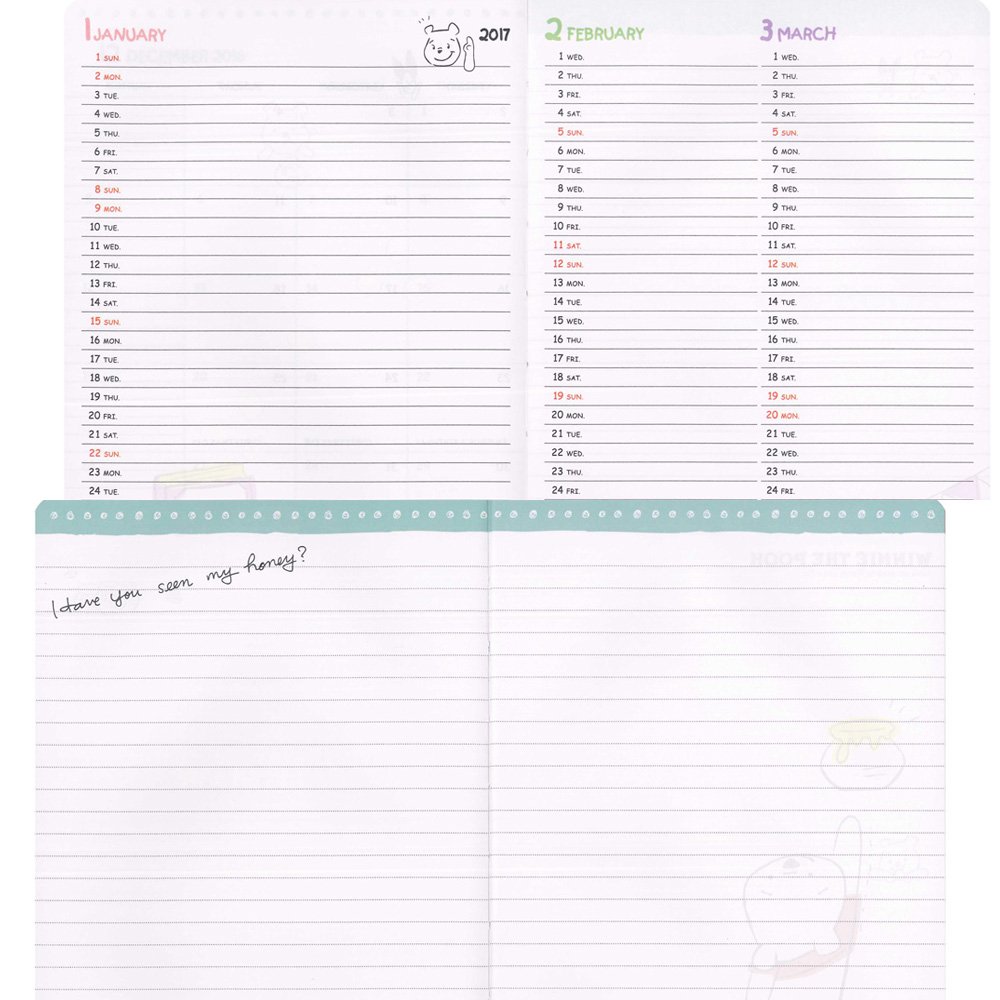 1 JANUARY
2017
1 SUN.
2 MON.
3 TUE.
4 WED.
5 THU.
6 FRI.
7 SAT.
8 SUN.
9 MON.
10 TUE.
11 WED.
12 THU.
13 FRI.
14 SAT.
15 SUN.
16 MON.
17 TUE.
18 WED.
19 THU.
20 FRI.
21 SAT.
22 SUN.
23 MON.
24 TUE.
2 FEBRUARY
1 WED.
2 THU.
3 FRI.
4 SAT.
5 SUN.
6 MON.
7 TUE.
8 WED.
9 THU.
10 FRI.
11 SAT.
12 SUN.
13 MON.
14 TUE.
15 WED.
16 THU.
17 FRI.
18 SAT.
19 SUN.
20 MON.
21 TUE.
22 WED.
23 THU.
24 FRI.
3 MARCH
1 WED.
2 THU.
3 FRI.
4 SAT.
5 SUN.
6 MON.
7 TUE.
8 WED.
9 THU.
10 FRI.
11 SAT.
12 SUN.
13 MON.
14 TUE.
15 WED.
16 THU.
17 FRI.
18 SAT.
19 SUN.
20 MON.
21 TUE.
22 WED.
23 THU.
24 FRI.
Have you seen my honey?
WINNIE THE POOH